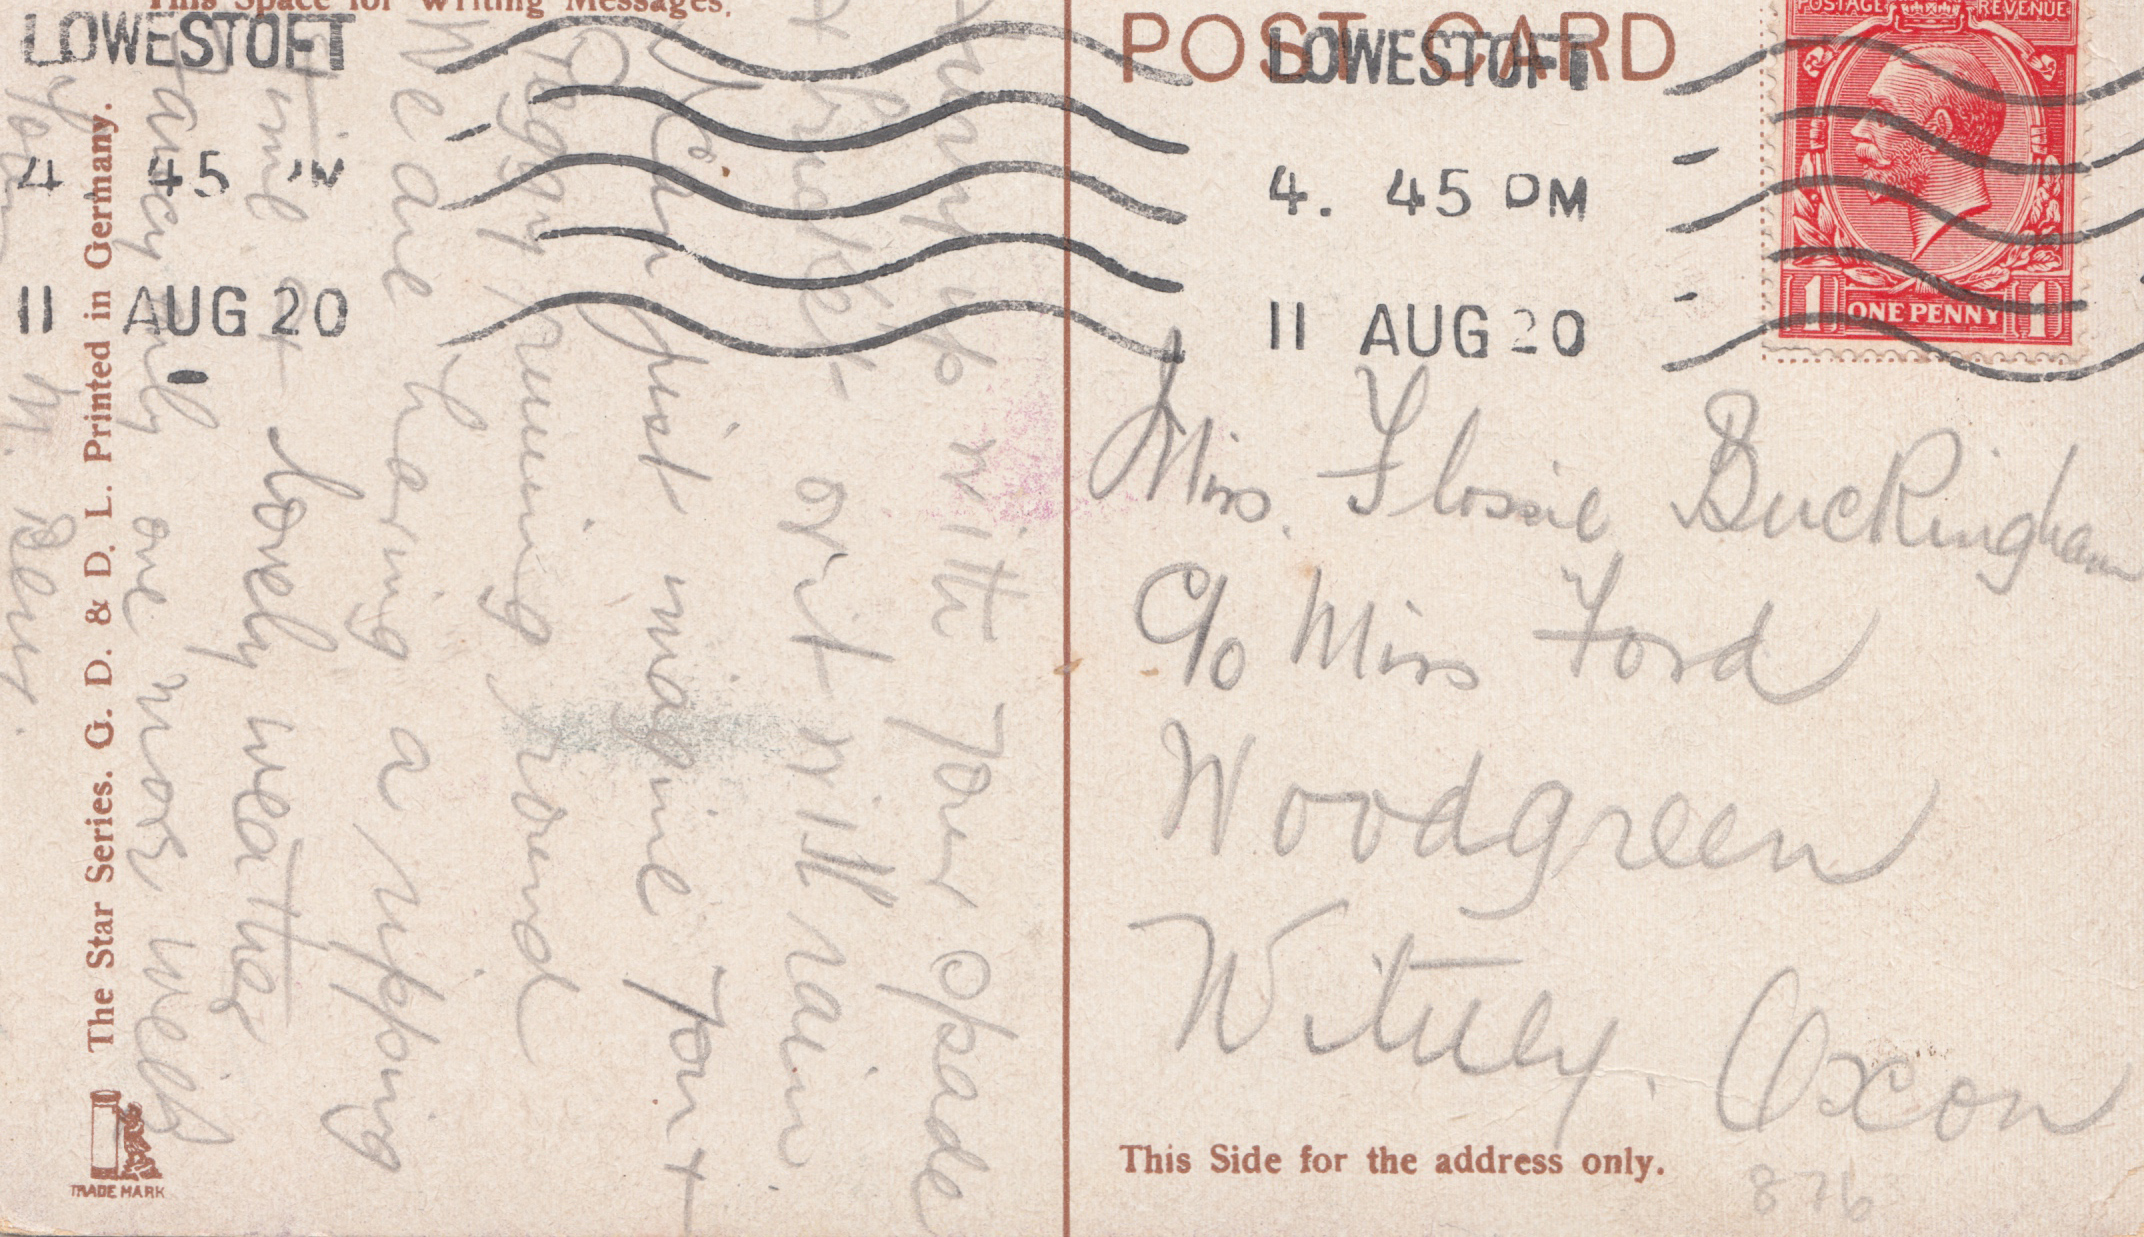 This Space for Writing Messages.
LOWESTOFT
4 45 PM
11 AUG 20
up with your spade
bucket or it will rain.
I can just imagine you +
Peggy running round
We are having a ripping
time + lovely weather
Fancy only one more week
M.
The Star Series. G. D. & D. L. Printed in Germany.
TRADE MARK
POST CARD
LOWESTOFT
4. 45 PM
11 AUG 20
POSTAGE REVENUE
1 ONE PENNY 1
Miss. Flossie Buckingham
c/o Miss Ford
Woodgreen
Witney. Oxon
This Side for the address only.
876